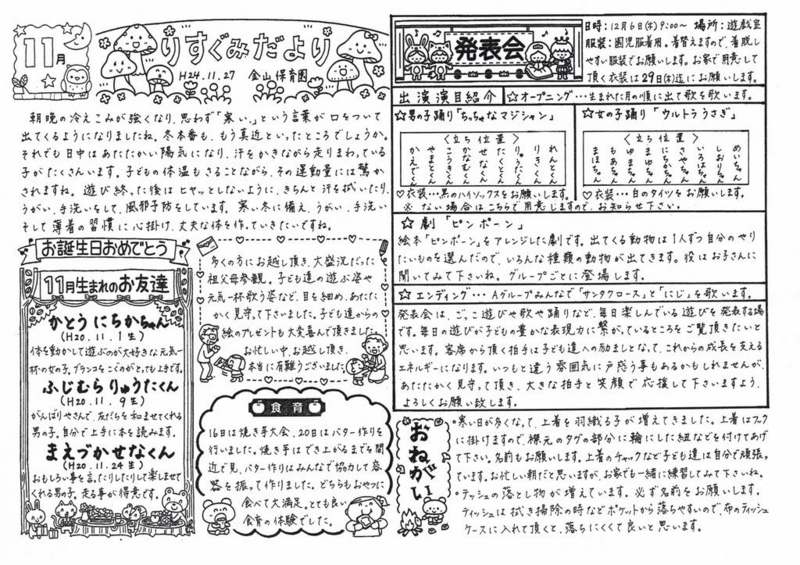 11月
りすぐみだより
H24.11.27 金山保育園
朝晩の冷えこみが強くなり、思わず「寒い」という言葉が口をついて
出てくるようになりましたね。冬本番も、もう真近といったところでしょうか。
それでも日中はあたたかい陽気になり、汗をかきながら走りまわっている
子がたくさんいます。子どもの体温もさることながら、その運動量には驚か
されますね。遊び終った後はヒヤッとしないように、きちんと汗を拭いたり、
うがい、手洗いをして、風邪予防をしています。寒い冬に備え、うがい、手洗い
そして薄着の習慣に心掛け、丈夫な体を作っていきたいですね。
お誕生日おめでとう
11月生まれのお友達
かとう にちかちゃん
(H20.11.1生)
体を動かして遊ぶのが大好きな元気一
杯の女の子。ブランコをこぐのがとても上手です。
ふじむら りゅうたくん
(H20.11.9生)
がんばりやさんで、友だちを和ませてくれる
男の子。自分で上手に本を読みます。
まえづかせなくん
(H20.11.24生)
おもしろい事を言ったりしたりして楽しませて
くれる男の子。走る事が得意です。
多くの方にお越し頂き、大盛況だった
祖父母参観。子ども達の遊ぶ姿や
元気一杯歌う姿など、目を細め、あたた
かく見守って下さいました。子ども達からの
絵のプレゼントも大変喜んで頂きました。
お忙しい中、お越し頂き、
本当に有難うございました。
食育
16日は焼き芋大会、20日はバター作りを
行いました。焼き芋はでき上がるまでを間
近で見、バター作りはみんなで協力して容
器を振って作りました。どちらもおやつに
食べて大満足。とても良い
食育の体験でした。
発表会
日時:12月6日(木)9:00~ 場所:遊戯室
服装:園児服着用。着替えますので、着脱し
やすい服装でお願いします。お家で用意して
頂く衣装は29日(木)迄にお願いします。
出演演目紹介
☆オープニング…生まれた月の順に出て歌を歌います。
☆男の子踊り「ちっちゃなマジシャン」
〈立ち位置〉
♡衣装…黒のハイソックスをお願いします。
※ない場合はこちらで用意しますので、お知らせ下さい。
☆女の子踊り「ウルトラうさぎ」
〈立ち位置〉
♡衣装…白のタイツをお願いします。
☆劇「ピンポーン」
絵本「ピンポーン」をアレンジした劇です。出てくる動物は1人ずつ自分のやり
たいものを選んだので、いろんな種類の動物が出てきます。役はお子さんに
聞いてみて下さいね。グループごとに登場します。
☆エンディング…Aグループみんなで「サンタクロース」と「にじ」を歌います。
発表会は、ごっこ遊びや歌や踊りなど、毎日楽しんでいる遊びを発表する場
です。毎日の遊びが子どもの豊かな表現力に繋がっているところをご覧頂きたいと
思います。客席から頂く拍手は子ども達への励ましとなって、これからの成長を支える
エネルギーになります。いつもと違う雰囲気に戸惑う事もあるかもしれませんが、
あたたかく見守って頂き、大きな拍手と笑顔で応援して下さいますよう、
よろしくお願い致します。
おねがい
・寒い日が多くなって、上着を羽織る子が増えてきました。上着はフック
に掛けますので、襟元のタグの部分に輪にした紐などを付けてあげ
て下さい。名前もお願いします。上着のチャックなど子ども達は自分で頑張っ
ています。お忙しい朝だと思いますが、お家でも一緒に練習してみて下さいね。
・ティッシュの落とし物が増えています。必ず名前をお願いします。
ティッシュは拭き掃除の時などポケットから落ちやすいので、布のティッシュ
ケースに入れて頂くと、落ちにくくて良いと思います。